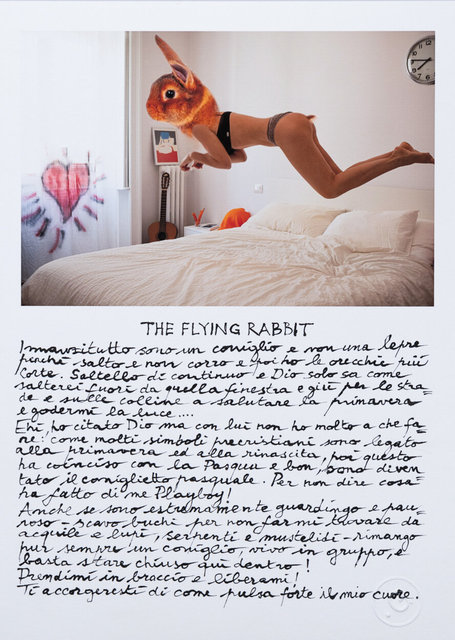 THE FLYING RABBIT
Innanzitutto sono un coniglio e non una lepre
perché salto e non corro e poi ho le orecchie più
corte. Saltello di continuo e Dio solo sa come
salterei fuori da quella finestra e giù per le stra-
de e sulle colline a salutare la primavera
e godermi la luce....
Ehi, ho citato Dio ma con lui non ho molto a che fa-
re: come molti simboli precristiani sono legato
alla primavera ed alla rinascita, poi questo
ha coinciso con la Pasqua e bon, sono diven
tato il coniglietto pasquale. Per non dire cosa
ha fatto di me Playboy!
Anche se sono estremamente guardingo e pau-
roso - scavo buchi per non farmi trovare da
aquile e lupi, serpenti e mustelidi - rimango
pur sempre un coniglio, vivo in gruppo, e
basta stare chiuso qui dentro!
Prendimi in braccio e liberami!
Ti accorgeresti di come pulsa forte il mio cuore.